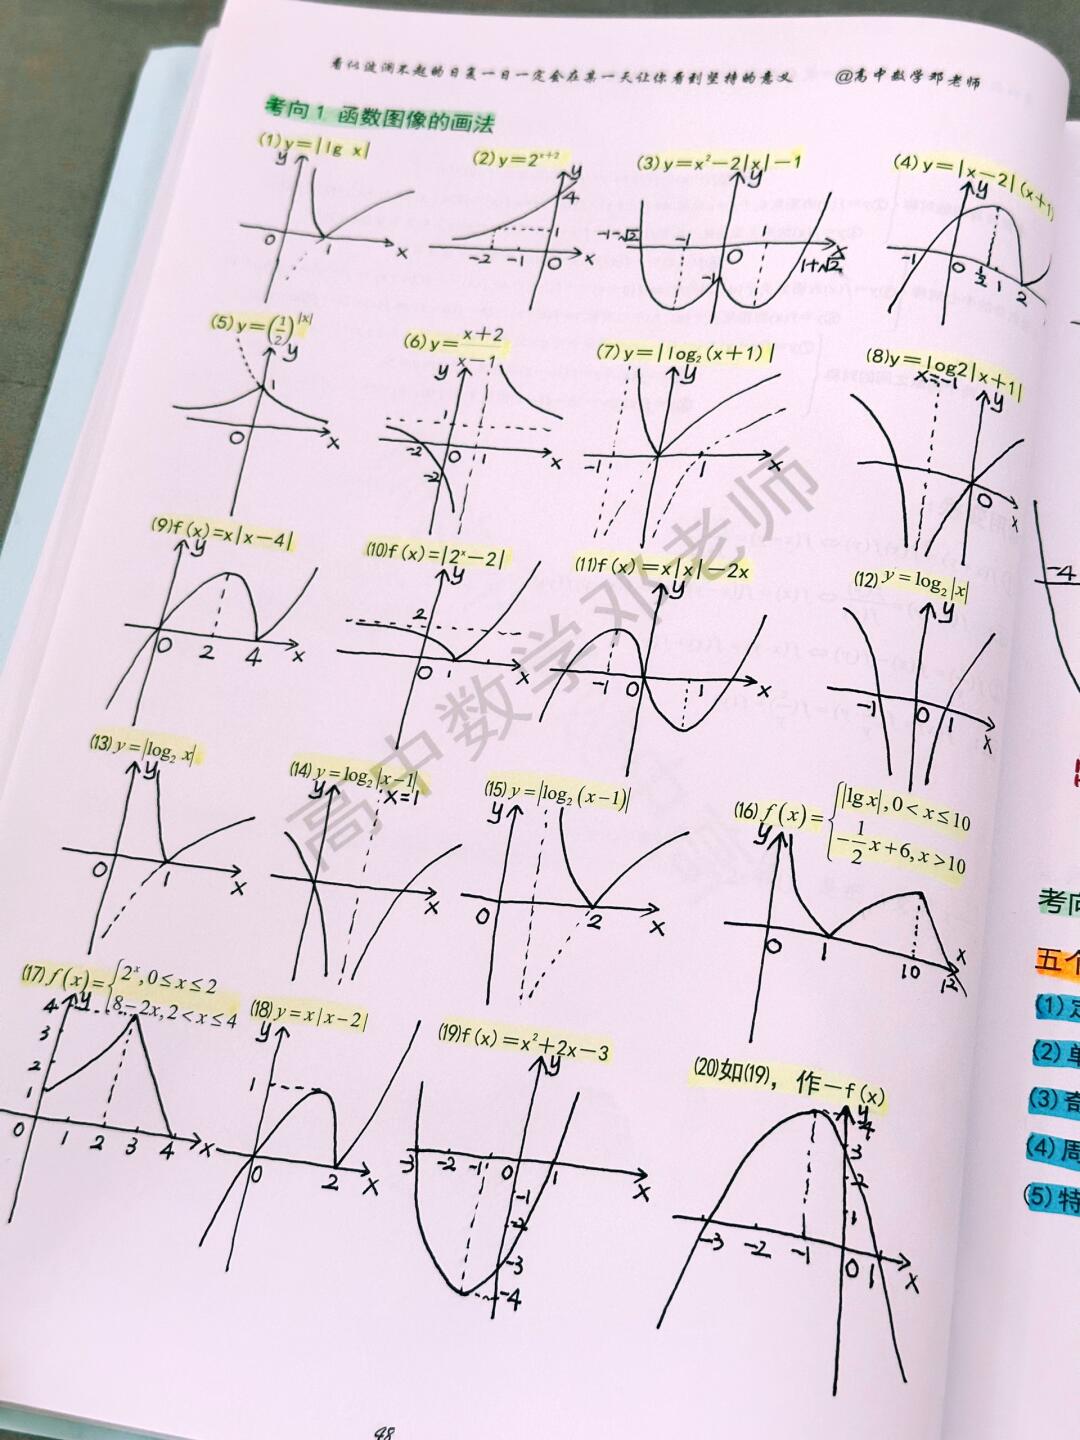 看似波澜不起的日复一日一定会在某一天让你看到坚持的意义 @高中数学邓老师
考向1 函数图像的画法
(1)y=|lg x|
(2)y=2^{x+2}
(3)y=x²-2|x|-1
(4)y=|x-2|(x+1)
y
0 1 x
y
4
1
-2 -1 0 x
y
-1-√2 -1 0 1+√2 x
-1
y
-1 0 1/2 1 2
(5)y=(1/2)^{|x|}
(6)y=(x+2)/(x-1)
(7)y=|log₂(x+1)|
(8)y=log2|x+1|
y
1
0 x
y
1
-2 0 1 x
-2
y
-1 1 x
x=-1
y
0 x
(9)f(x)=x|x-4|
(10)f(x)=|2ˣ-2|
(11)f(x)=x|x|-2x
(12)y=log₂|x|
y
0 2 4 x
y
2
0 1 x
y
-1 0 1 x
y
-1 0 1 x
(13)y=|log₂x|
(14)y=log₂|x-1|
(15)y=|log₂(x-1)|
(16)f(x)={|lgx|,0<x≤10
-1/2x+6,x>10
y
0 1 x
y x=1
x
y
0 2 x
y
0 1 10 12 x
(17)f(x)={2ˣ,0≤x≤2
8-2x,2<x≤4
(18)y=x|x-2|
(19)f(x)=x²+2x-3
(20)如(19),作-f(x)
y
4
3
2
1
0 1 2 3 4 x
y
1
0 2 x
y
-3 -2 -1 0 1 x
-1
-2
-3
-4
y
4
3
2
1
-3 -2 -1 0 1 x
48
高中数学邓老师
-4
考向
五个
(1)定
(2)单
(3)奇
(4)周
(5)特